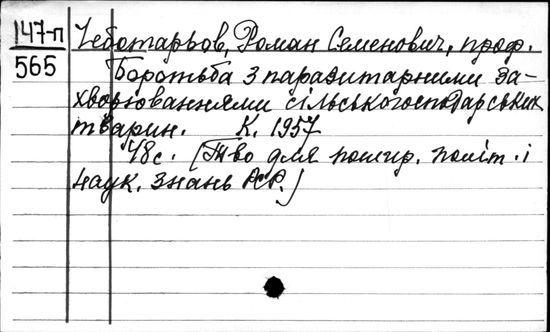 147-п
565
Чеботарьов, Роман Семенович, проф.
Боротьба з паразитарними за-
хворюваннями сільськогосподарських
тварин. К. 1957
48 с. (Т-во для пошир. політ. і
наук. знань РСР.)